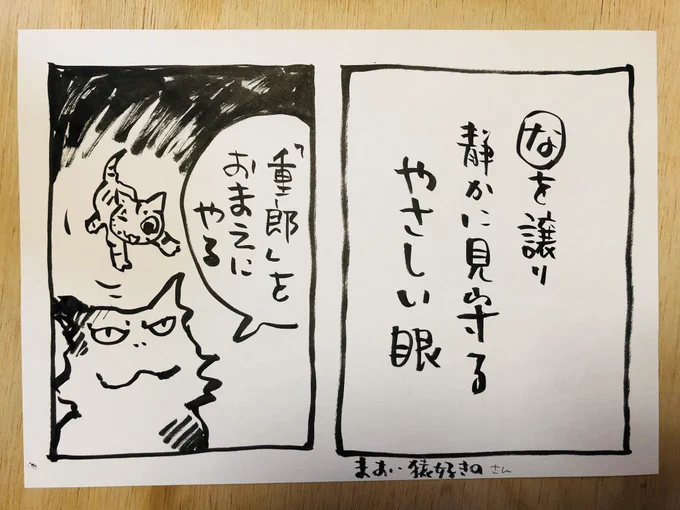 なを譲り
静かに見守る
やさしい眼
「重郎」を
おまえに
やる
まあい猿好きのさん